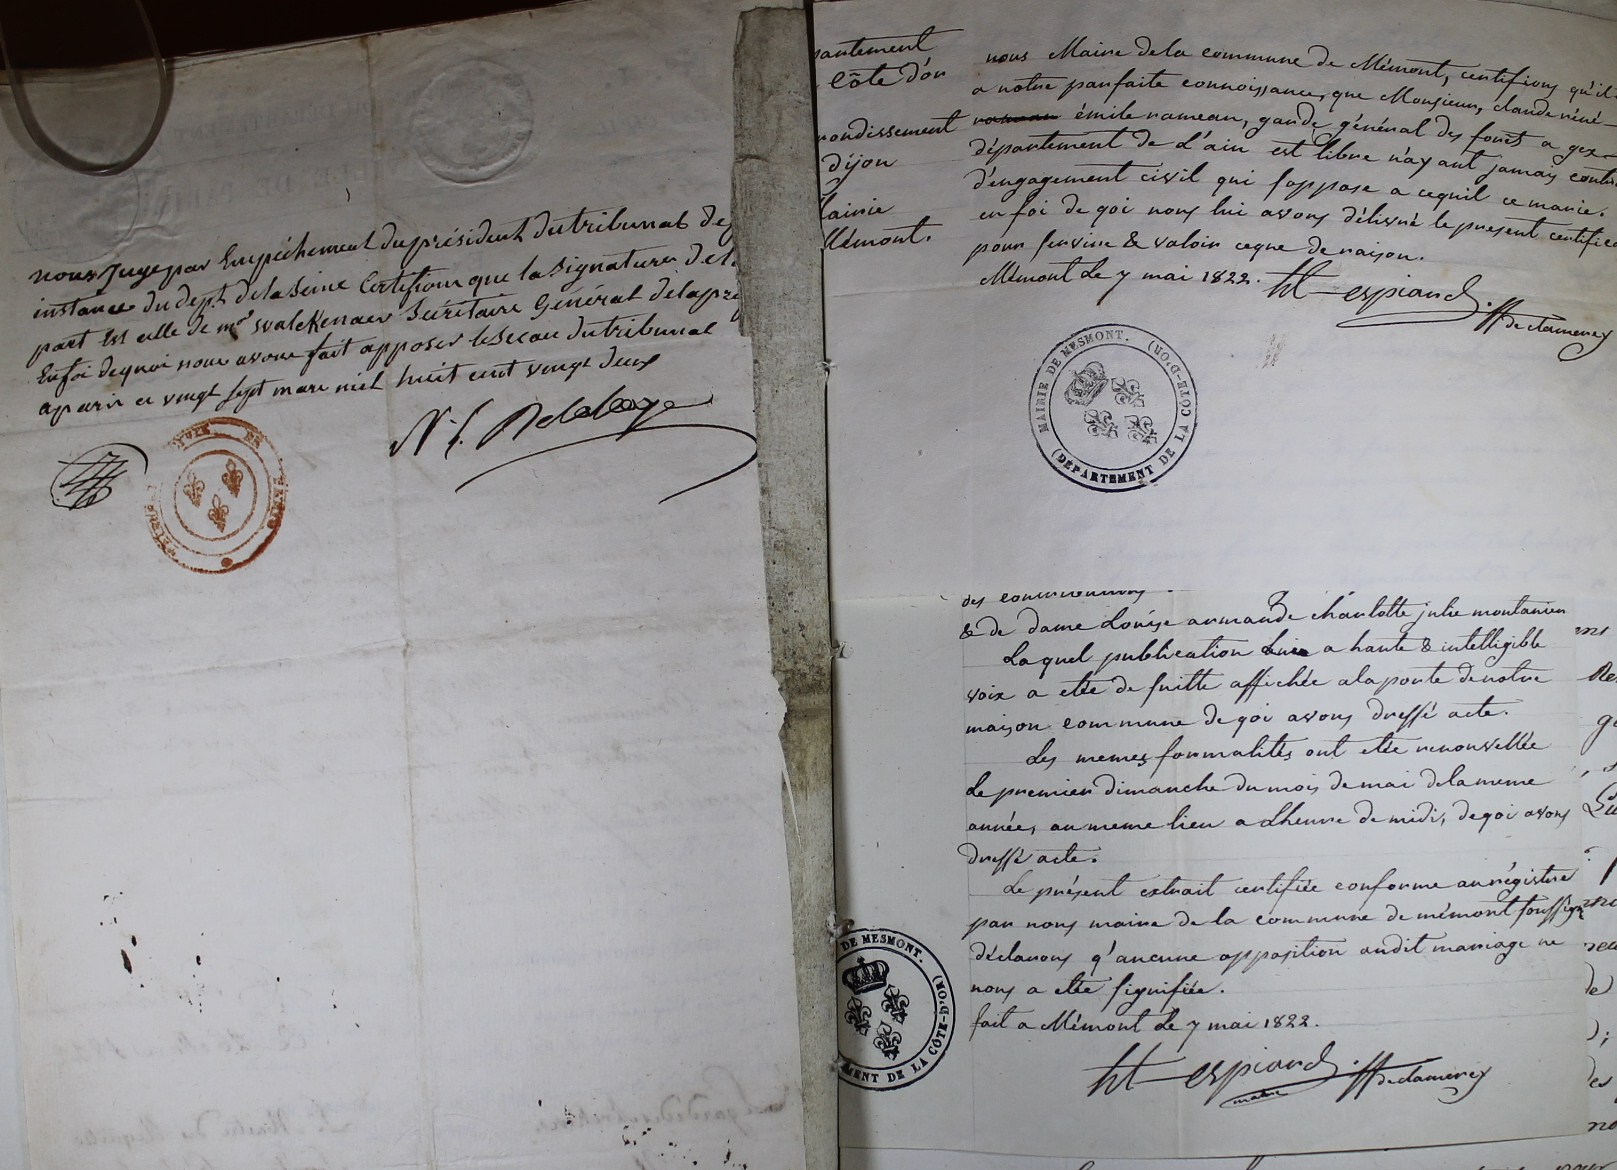 nous Juge par Empêchement du président du tribunal de
instance du dépt de la Seine Certifions que la Signature de
part Est celle de mr Walckenaer Secrétaire Général de la pré
En foi de quoi nous avons fait apposer le Sceau du tribunal
a paris ce vingt Sept mars mil huit cent vingt deux
artement
Côte d'or
rondissement
dijon
airie
Mémont.
nous Maire de la commune de Mémont, certifions qu'il
a notre parfaite connoissance, que Monsieur, claude réné
rameau émile rameau, garde général des forêts a gex
département de L'ain est libre n'ayant jamais contr
d'engagement civil qui s'oppose a cequil ce marie.
en foi de qoi nous lui avons délivré le present certific
pour servire & valoir ceque de raison.
Mémont Le 7 mai 1822.
ht espiard. ff de clamerey
MAIRIE DE MESMONT.
(DÉPARTEMENT DE LA CÔTE-D'OR)
& de dame Louise armande charlotte julie montanier
Laquel publication Luie a haute & intelligible
voix a etée de suitte affichée a la porte de notre
maison commune de qoi avons dressé acte.
Les memes formalités ont etée renouvellée
Le premier dimanche du mois de mai de la meme
année, au meme lieu a Lheure de midi, de qoi avons
dressé acte.
Le présent extrait certifiée conforme au régistre
par nous maire de la commune de mémont soussigné
déclarons q'aucune opposition au dit mariage ne
nous a etée signifiée.
fait a Mémont Le 7 mai 1822.
ht espiard. ff de clamerey
maire
DE MESMONT.
MENT DE LA CÔTE-D'OR)